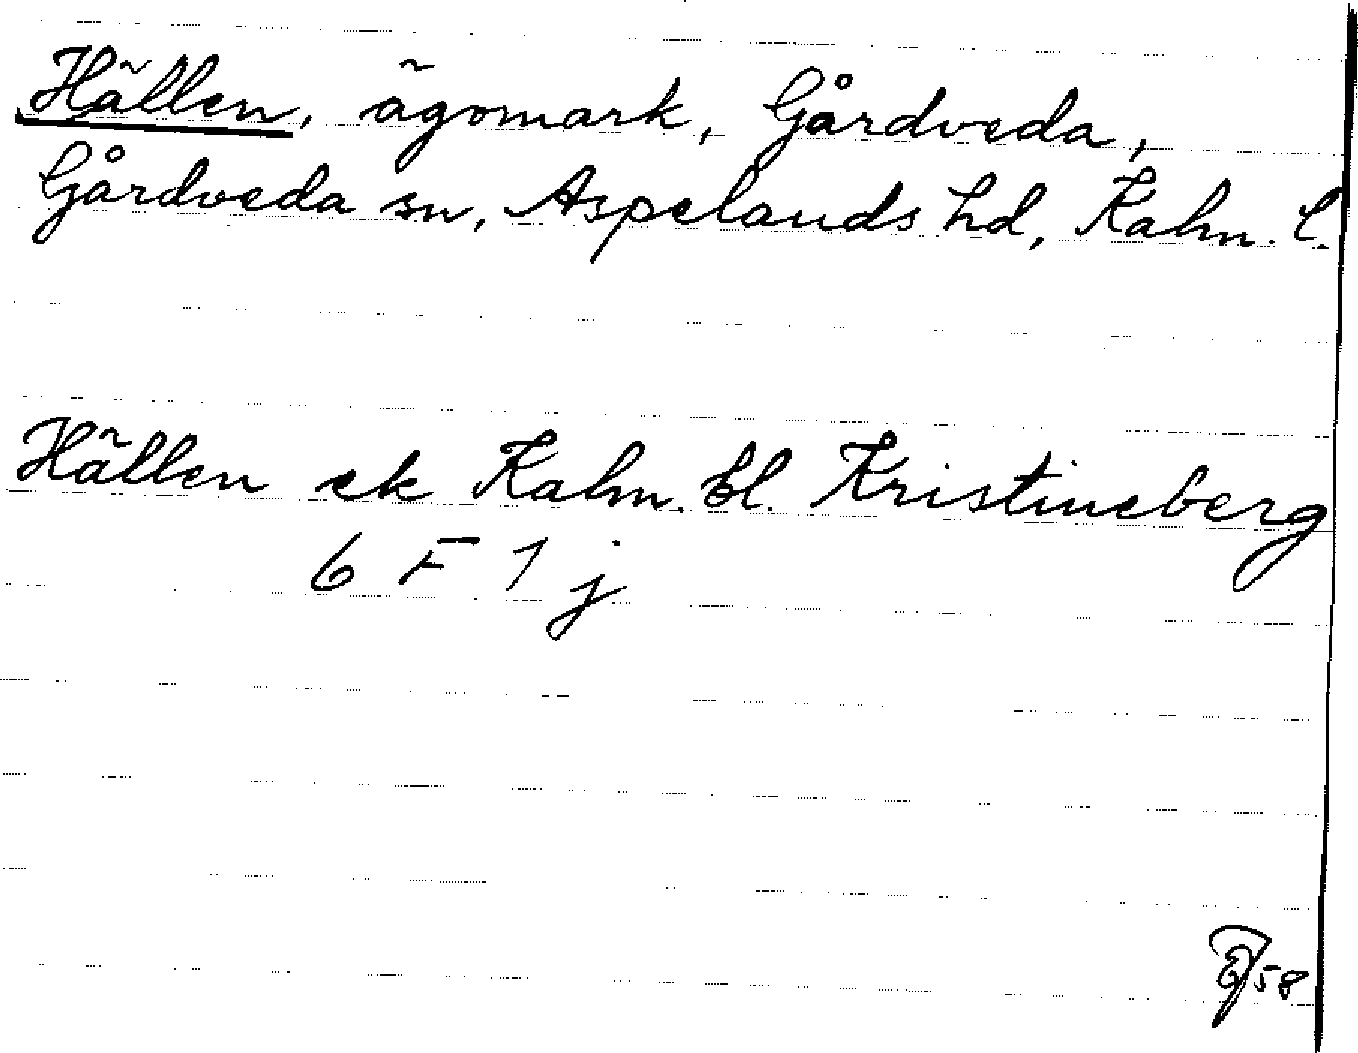 Hällen, ägomark, Gårdveda,
Gårdveda sn, Aspelands hd, Kalm. l.
Hällen ek Kalm. bl. Kristineberg
6 F 1 j
58